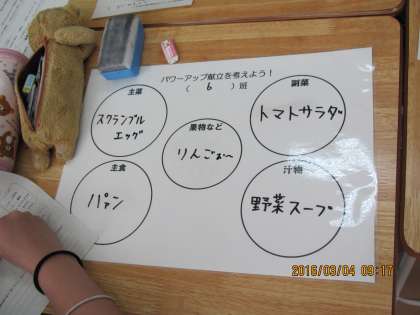 パワーアップ献立を考えよう!
( 6 )班
主菜
スクランブル
エッグ
副菜
トマトサラダ
果物など
りんごぉ〜
主食
パァン
汁物
野菜スープ
2016/03/04 09:17